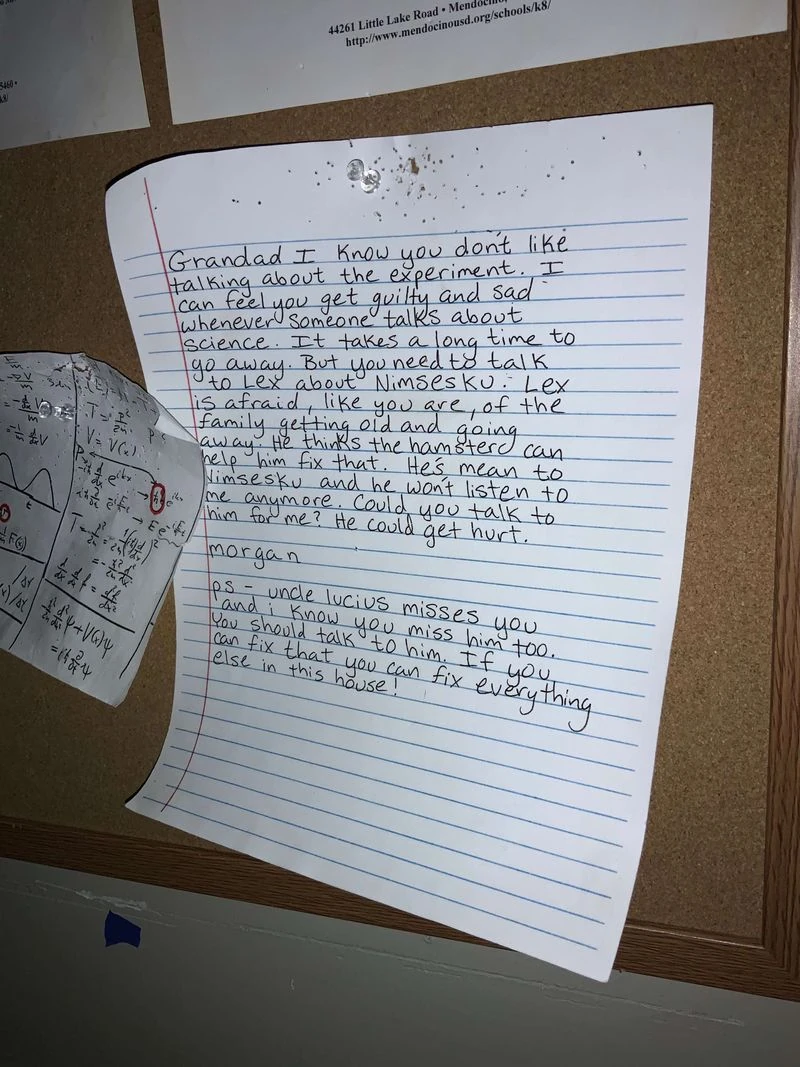 44261 Little Lake Road • Mendocino,
http://www.mendocinousd.org/schools/k8/
5460 •
k8/
Grandad I know you don't like
talking about the experiment. I
can feel you get guilty and sad
whenever someone talks about
science. It takes a long time to
go away. But you need to talk
to Lex about Nimsesku. Lex
is afraid, like you are, of the
family getting old and going
away. He thinks the hamster can
help him fix that. He's mean to
Nimsesku and he won't listen to
me anymore. Could you talk to
him for me? He could get hurt.
morgan
ps - uncle lucius misses you
and i know you miss him too.
You should talk to him. If you
can fix that you can fix everything
else in this house!
V = V(x)